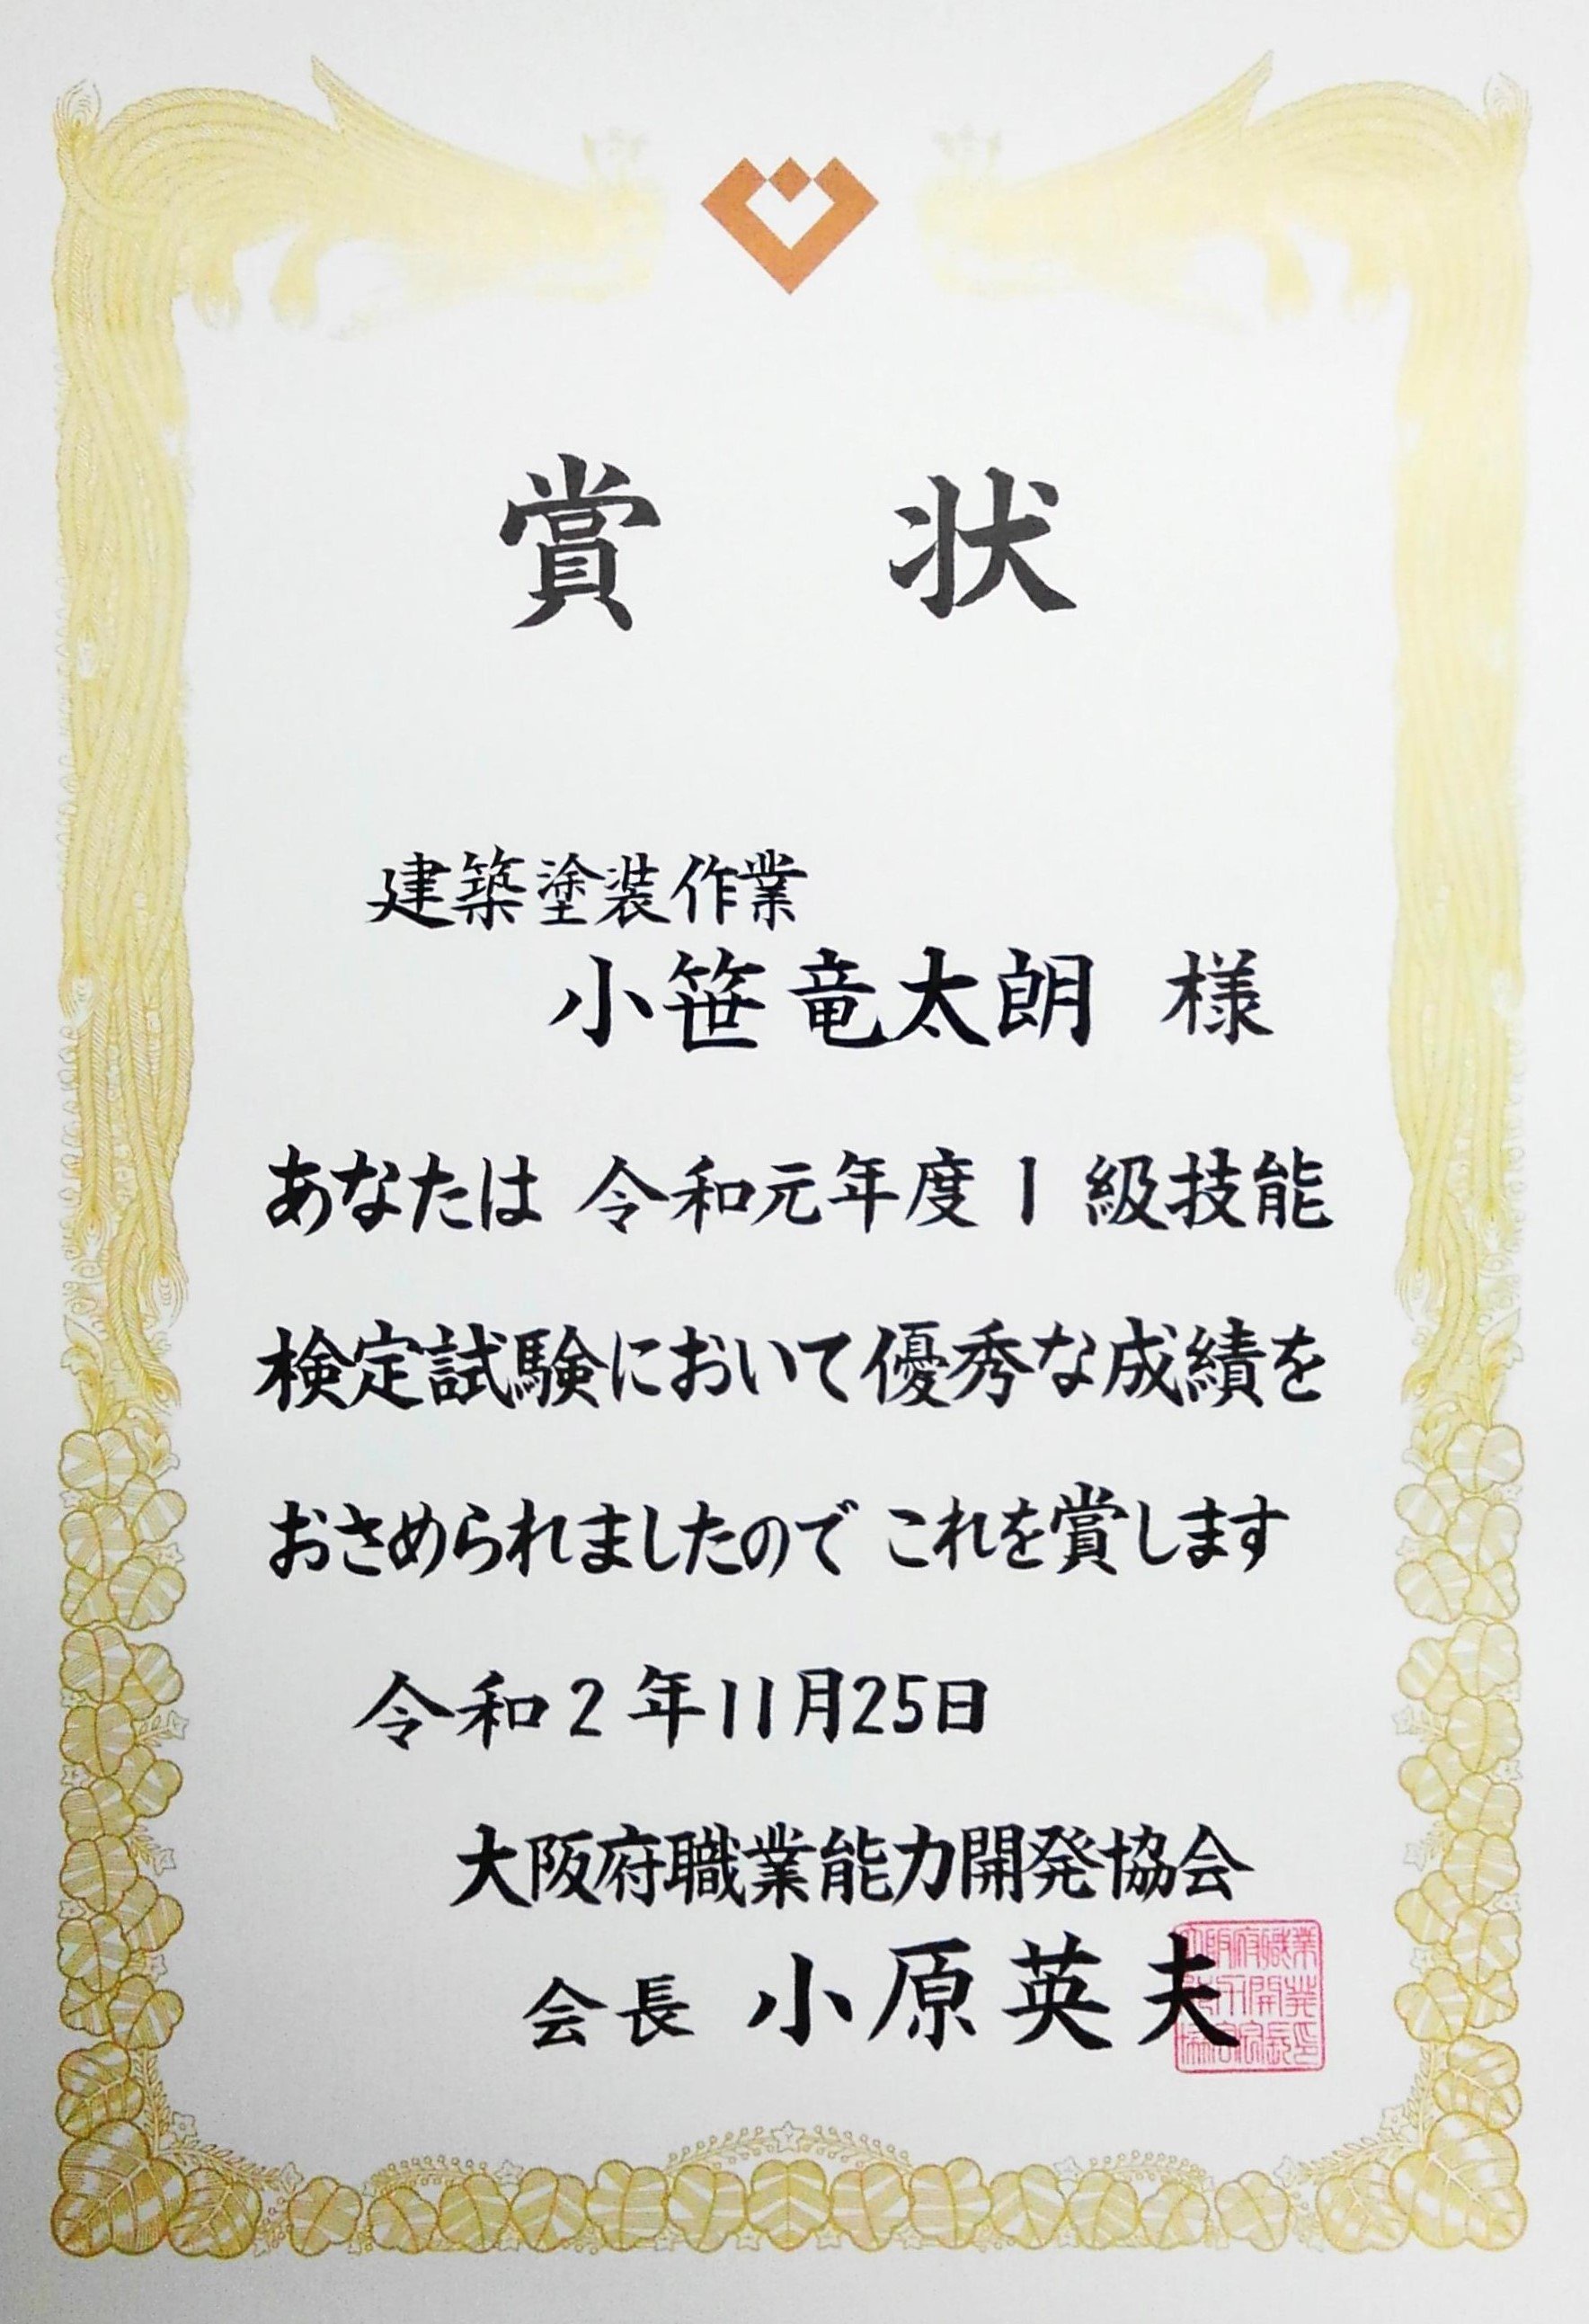 賞状
建築塗装作業
小笹竜太朗 様
あなたは 令和元年度1級技能
検定試験において優秀な成績を
おさめられましたので これを賞します
令和2年11月25日
大阪府職業能力開発協会
会長 小原英夫